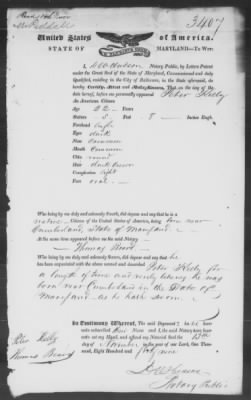 3407
United States of America.
STATE OF MARYLAND—To Wit:
I, Notary Public, by Letters Patent
under the Great Seal of the State of Maryland, Commissioned and duly
Qualified, residing in the City of Baltimore, in the State aforesaid, do
hereby Certify, Attest and Make Known, That on the day of the
date hereof, before me personally appeared Peter Kelly
An American Citizen
Age 22 Years
Stature 5 Feet 8 Inches Engh.
Forehead high
Eyes dark
Nose Common
Mouth Common
Chin round
Hair dark brown
Complexion light
Face oval
Who being by me duly and solemnly Sworn, did depose and say that he is a
native Citizen of the United States of America, being born near
Cumberland, State of Maryland
At the same time appeared before me the said Notary
Thomas
Who being by me duly and solemnly Sworn, did depose and say that he
has been acquainted with the above named and described
Peter Kelly for
a length of time and verily believes he was
born near Cumberland in the State of
Maryland as he hath sworn
In Testimony Whereof, The said Deponent S ha
hereunto set and I, the said Notary have hereunto
set my Hand, and affixed my Notarial Seal this 13th
day of November in the year of our Lord, One Thou-
sand, Eight Hundred and
Peter Kelly
Thomas
Notary Public